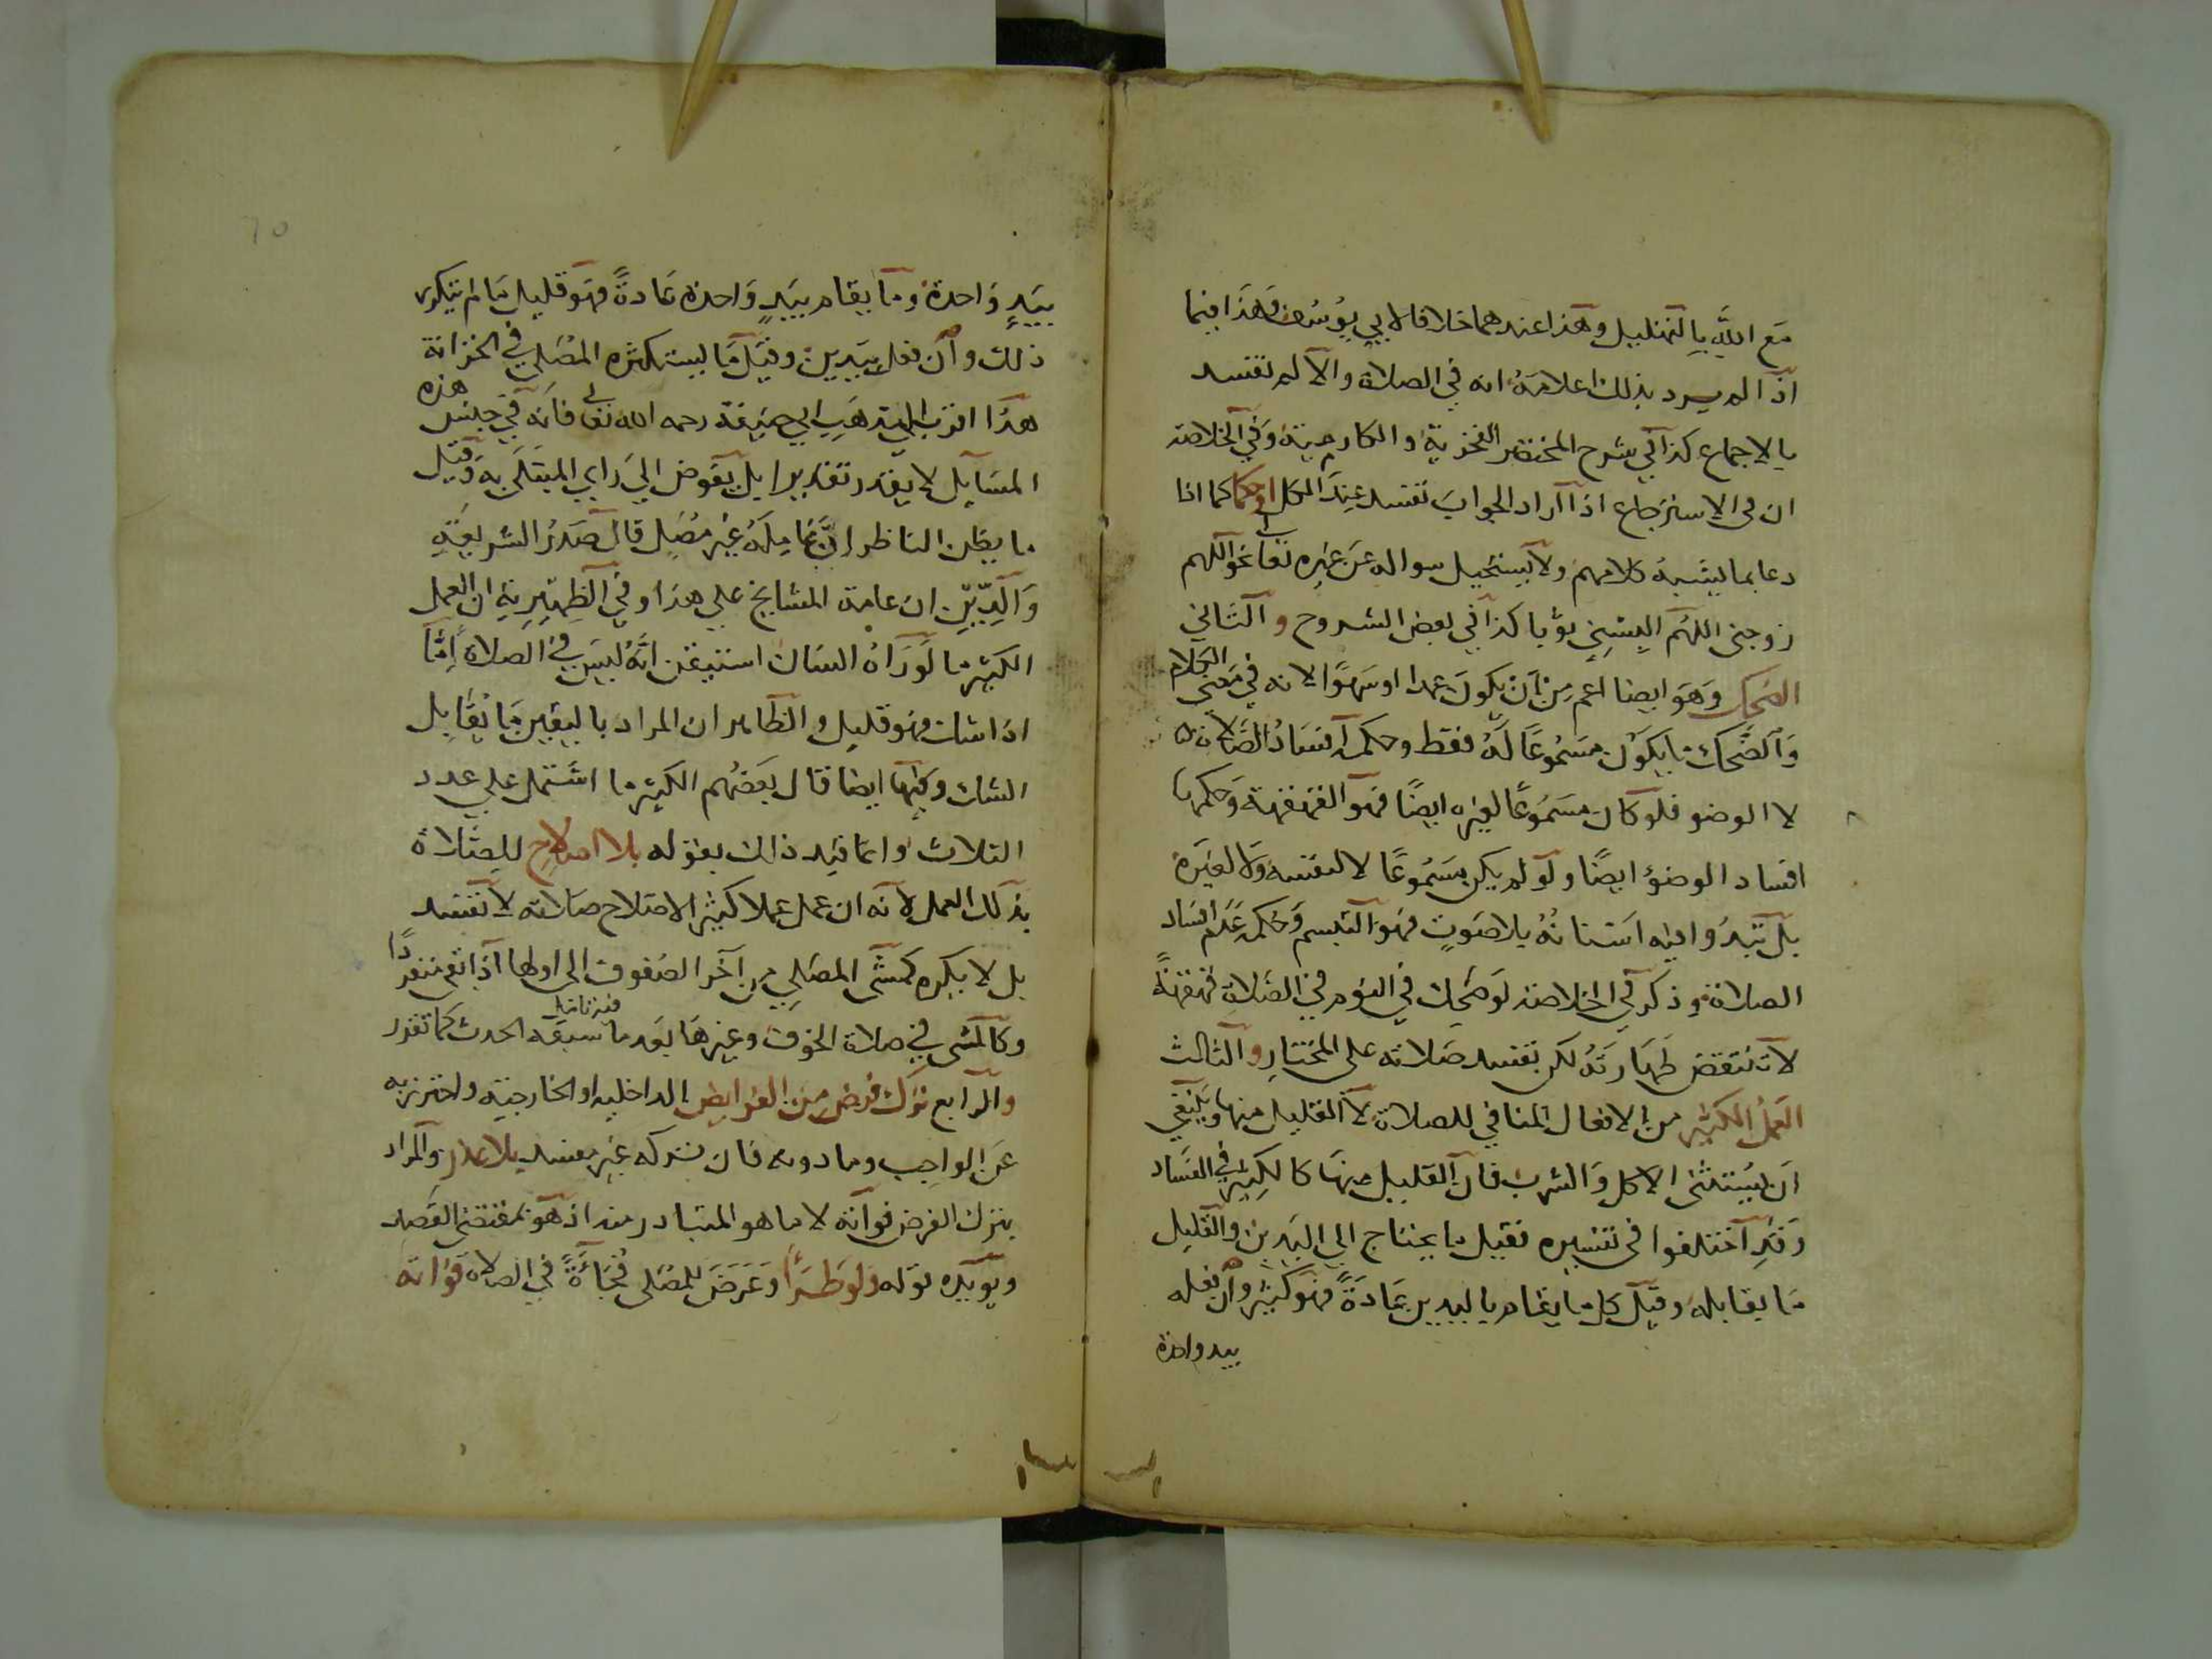 مَع اللَّهِ بِالتهليل وهذا عندهما خلافا لابي يُوسُف وَهَذا فيما
اذا لم يرد بذلك اعلامَهُ انه في الصلاة والا لم تفسد
بالاجماع كذا في شرح المختصر الفخرية والمكارمية وَفي الخلاصة
ان في الاسترجاع اذا اراد الجوابَ تفسد عِندَ الكل او حكما كما اذا
دعا بما يشبهُ كلامهم ولا يستحيل سواله عَن غيره تعالى نحو اللهم
زوجني اللهُم البِسْنِي ثوْبا كذا في بعض الشروح و الثاني
الضحك وَهوَ ايضا اعم مِن اَن يكونَ عمدا او سَهوًا لانه في مَعنى الكلام
وَالضَّحك ما يكوْن مسَمُوعًا لَهُ فقط وحكمه افسَادُ الصَّلاة
لا الوضو فلو كان مسَمُوعًا لغيره ايضًا فهوَ القهقهة وَحكمها
افساد الوضوْ ايضًا ولو لم يكن مسَمُوعًا لا لنفسه وَلا لغيَره
بل تبدُوا فيه اسَنانهُ بلا صَوتٍ فهوَ التبسم وَحكمه عَدَم افسَاد
الصلاة وذكر في الخلاصة لَوضَحِك في النوم في الصَّلاة قهقهةً
لا تنتقض طَهَارَتهُ لكن تفسد صَلاته على المختارِ و الثالث
العَملُ الكثير من الافعال المنافي للصلاة لا القليل منها وَينبغي
اَن يُستثنى الاكل وَالشرب فان القليل منهَا كالكِثير في الفسَاد
وَقدِ آختلفوا في تفسيره فقيل ما يحتاج الى اليَدين والقليل
مَا يقابله وَقيل كل ما يقام باليدين عَادَةً فهوَ كثير وان فعله
بيد واحدة
بيَدٍ وَاحدةٌ وما يقام بيَدٍ وَاحدة عَادةً فهَو قليل مَا لم يتكرر
ذلك وان فعل بيَدين وقيل مَا يستكثره المصَلى في الخزانة
هذا اقرب الى مذهَبِ ابي حنيفة رحمه الله تعالى فانه في جنس هذه
المسَايل لا يقدر تقديرا بل يفوض الى رَاي المبتلَى به وَقيل
ما يظن الناظر اِنَّ عَامِلَهُ غير مُصَلٍ قال صَدرُ الشريعَةِ
وَالدِّينِ ان عامة المشايخ علي هذا وفي الظهِيرية ان العمل
الكثير ما لوَرَاهُ انسَان استيقن انّهُ ليسَ في الصلاة اِمّا
اذا شك فهو قليل والظاهر ان المراد باليقين مَا يقابل
الشك وَفيها ايضا قال بعَضهُم الكثير ما اشَتمل على عدد
الثلاث وانما قيد ذلك بقوله بلا اصلاحٍ للصَّلاة
بذلك العمل لانه ان عمل عملا كثيرا لاصَلاح صَلاته لا تفسد
بل لا يكره كمشى المصَلِي مِن آخر الصفوف الى اولها اذا بقي منفردًا
وكالمشى في صلاة الخوف وغيرهَا بعَد ما سبقه الحدث كما تقرر
والرابع ترَك فرض مِن الفرايض الداخلية او الخارجية واحترز به
عَن الواجب وما دونه فان تركه غير مفسد بلا عذر والمراد
بترك الفرض فواته لا ما هو المتبادر منه اذ هو بمقتضى القصد
ويوَيده قوله وَلو طَرَأ وَعَرَضَ للمصَلى فُجَأَةً في الصلاة فوَاته